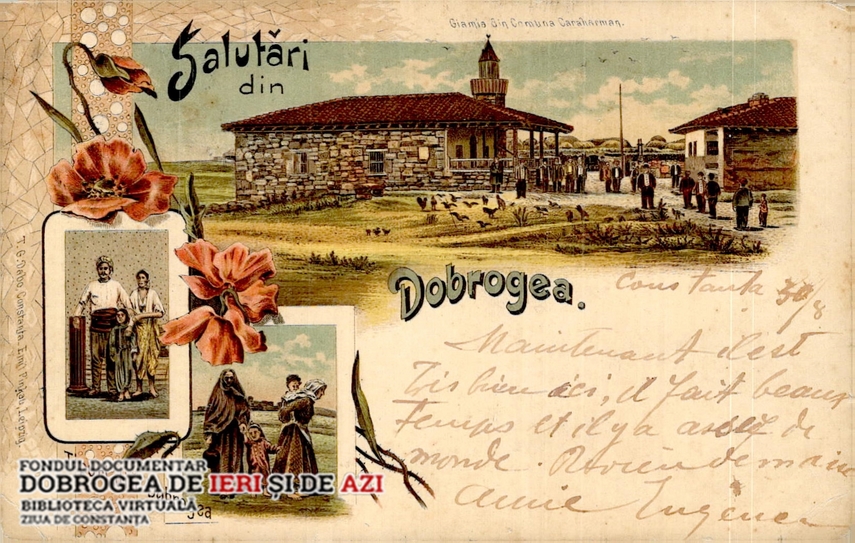 Giamia din Comuna Caraharman.
Salutări
din
Dobrogea.
T. G. Dabo, Constanța, Emil Pinkau, Leipzig.
Constanta 30/8
Maintenant il est
très bien ici, il fait beau
temps et il y a assez de
monde. Reviendemain
Annie Eugenen
FONDUL DOCUMENTAR
DOBROGEA DE IERI ȘI DE AZI
BIBLIOTECA VIRTUALĂ
ZIUA DE CONSTANȚA